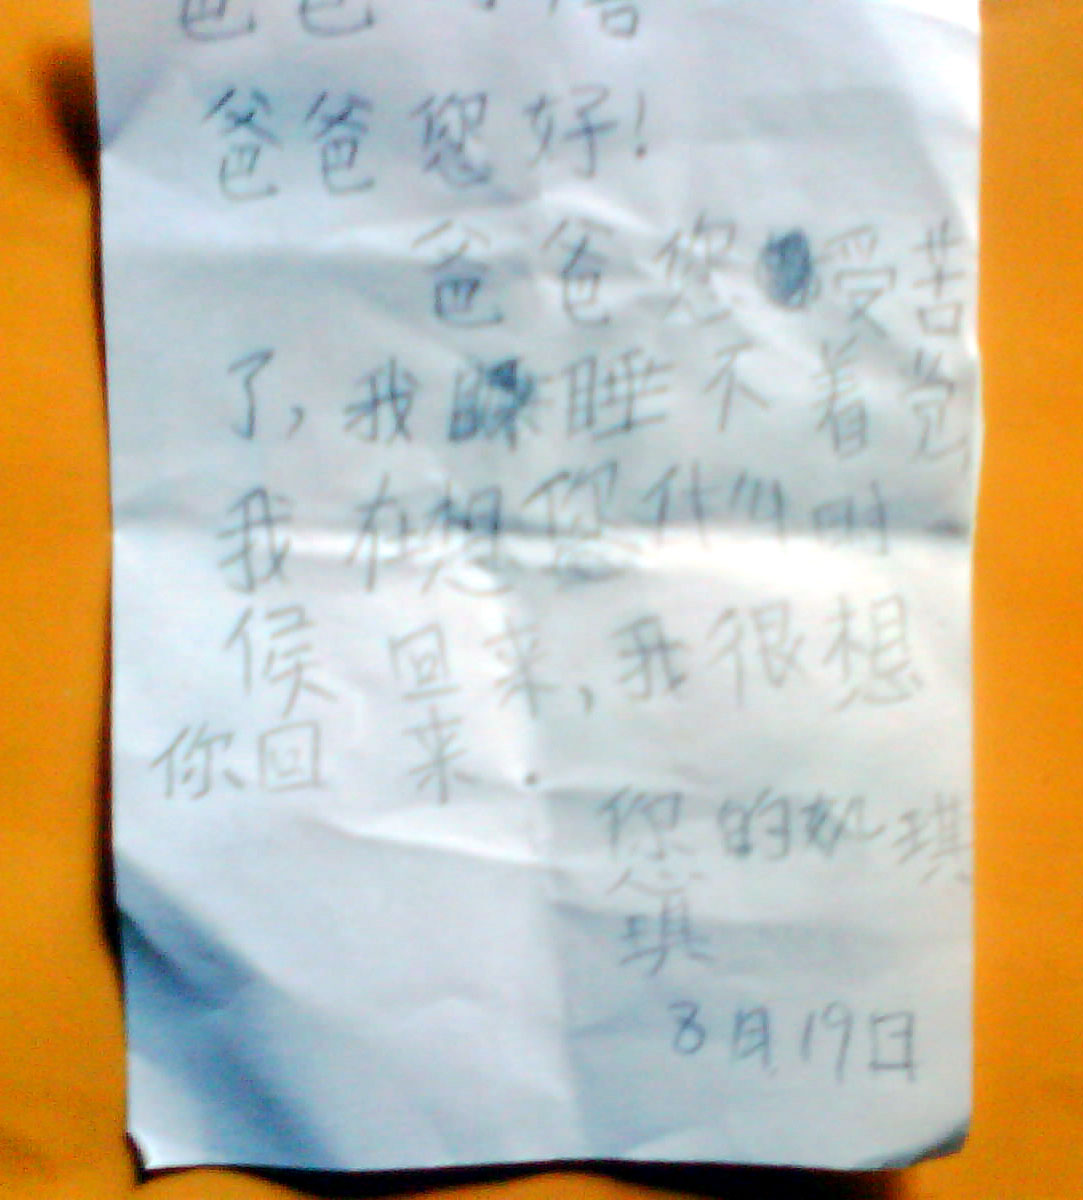 爸爸
爸爸您好!
爸爸您受苦
了,我睡不着觉
我在想您什么时
候回来,我很想
你回来.
您的 琪
琪
8月19日